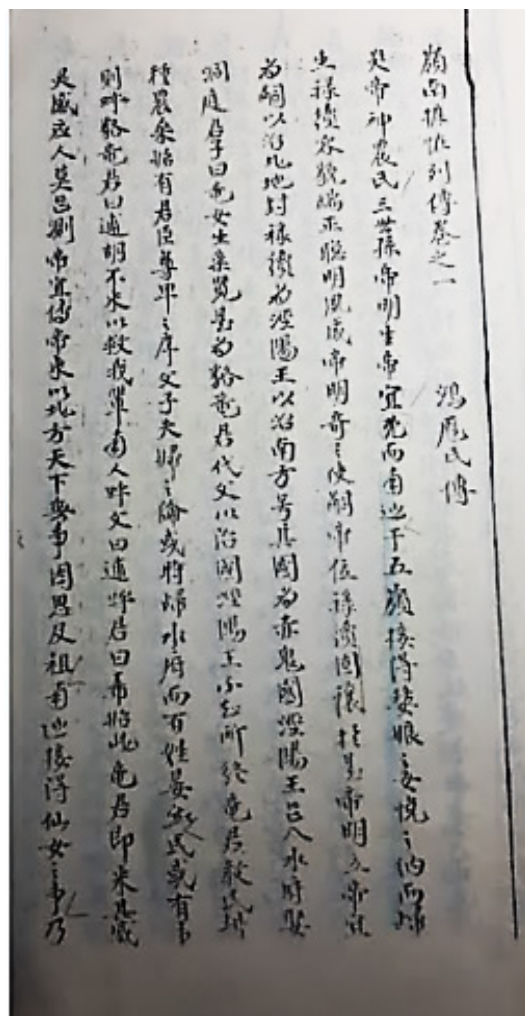 嶺南摭怪列傳卷之一 鴻厖氏傳
炎帝神農氏三世孫帝明生帝宜先而南巡于五嶺接得婺娘之女悅之納而歸
生祿續容貌端正聰明夙成帝明奇之使嗣帝位祿續固讓於兄帝明立帝宜
為嗣以治北地封祿續為涇陽王以治南方号其國為赤鬼國涇陽王入水府娶
洞庭君子曰竜女生崇覽是為貉竜君代父以治國涇陽王不知所終竜君教民耕
種農桑始有君臣尊卑之序父子夫婦之倫或時歸水府而百姓晏然民或有事
則呼貉竜君曰逋胡不來以救我輩南人呼父曰逋呼君曰希始此竜君即來其威
灵感应人莫呂測帝宜傳帝來以北方天下無事因思及祖南巡接得仙女之事乃